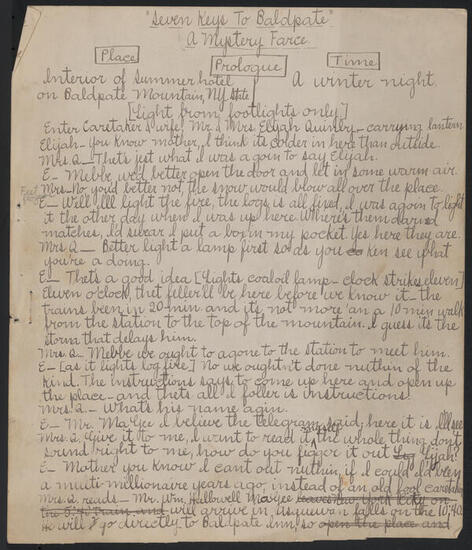 "Seven Keys To Baldpate"
A Mystery Farce.
Place
Prologue
Time
Interior of Summer hotel
on Baldpate Mountain, N.Y. State
A winter night.
[Light from footlights only]
Enter Caretaker & wife. Mr. & Mrs. Elijah Quimby – carrying lantern
Elijah – You know mother, I think its colder in here than outside.
Mrs Q – Thats just what I was a goin to say Elijah.
E – Mebbe we'd better open the door and let in some warm air.
Mrs – No you'd better not, the snow would blow all over the place.
E – Well I'll light the fire, the logs is all fixed, I was agoin to light
it the other day when I was up here. Where's them darned
matches, I'd swear I put a box in my pocket. Yes here they are.
Mrs Q – Better light a lamp first so as you ken see what
you're a doing.
E – Thets a good idea [Lights coaloil lamp – clock strikes eleven]
Eleven o'clock, thet feller'll be here before we know it – the
trains been in 20 min and its not more'an a 10 min walk
from the station to the top of the mountain. I guess its the
storm that delays him.
Mrs. Q – Mebbe we ought to agone to the station to meet him.
E – [as it lights log fire] No we ought n't done nuthin of the
kind. The instructions says to come up here and open up
the place – and thets all I foller is instructions.
Mrs. Q – What's his name agin.
E – Mr. MaGee I believe the telegram said, here it is, I'll see
Mrs. Q. Give it to me, I want to read it myself, the whole thing don't
sound right to me, how do you figger it out Lijah.
E – Mother you know I cant out nuthin, if I could I'd been
a multi millionaire years ago, instead of an old fool caretaker
Mrs. Q reads – Mr. Wm. Hallowell Magee leaves New York City on
the and will arrive in Asquewan Falls on the 10:40.
He will go directly to Baldpate Inn, so open the place and